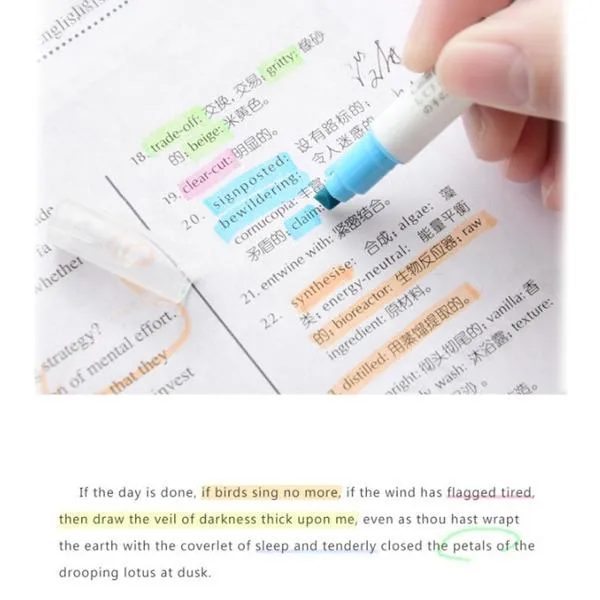 englishlights
gritty: 橡砂
18. trade-off: 交换, 交易;
的; beige: 米黄色。
19. clear-cut: 明显的。
20. signposted: 设有路标的;
bewildering: 令人迷惑的
cornucopia: 丰富
矛盾的; claim:
21. entwine with: 紧密结合。
22. synthesise: 合成; algae: 藻
类; energy-neutral: 能量平衡
的; bioreactor: 生物反应器; raw
ingredient: 原材料。
distilled: 用蒸馏提取的。
upright: 彻头彻尾的; vanilla: 香
wash: 沐浴露; texture:
whether
strategy?
n of mental effort.
that they
invest
If the day is done, if birds sing no more, if the wind has flagged tired,
then draw the veil of darkness thick upon me, even as thou hast wrapt
the earth with the coverlet of sleep and tenderly closed the petals of the
drooping lotus at dusk.